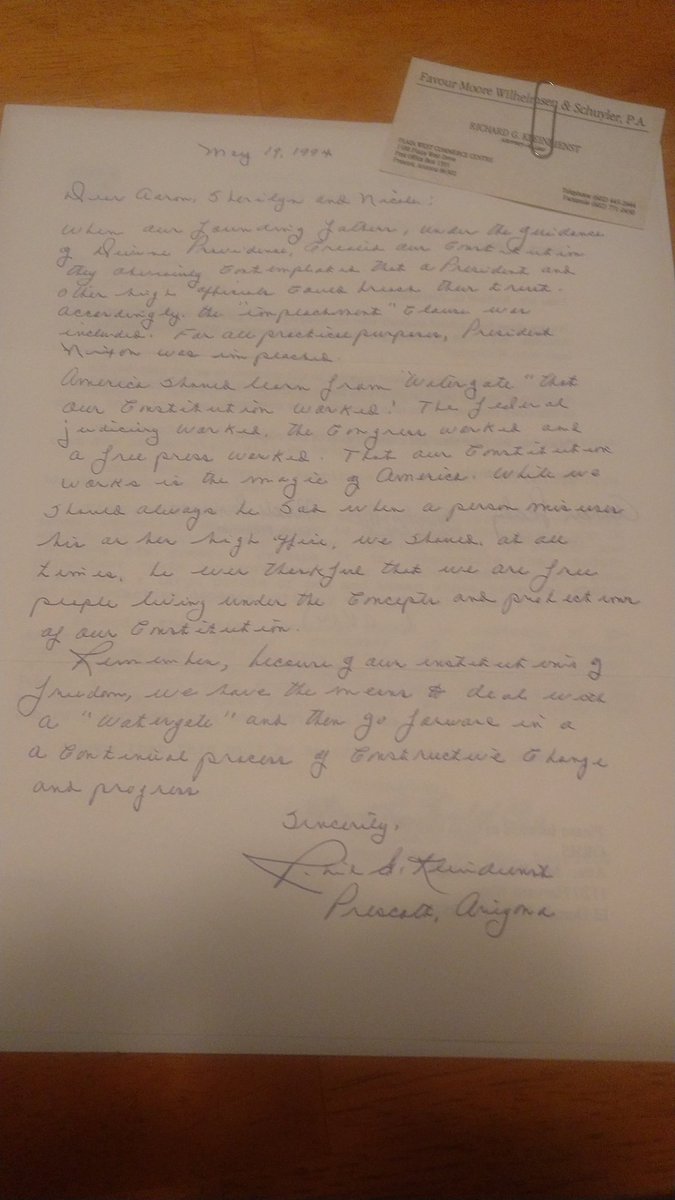 Favour Moore Wilhelmsen & Schuyler, P.A.
RICHARD G. KLEINDIENST
PLAZA WEST COMMERCE CENTRE
Prescott, Arizona
May 19, 1994
Dear Aaron, Sheridyn and Nicole:
When our founding fathers, under the guidance
of Divine Providence, created our Constitution
they obviously contemplated that a President and
other high officials could breach their trust.
Accordingly, the "impeachment" clause was
included. For all practical purposes, President
Nixon was impeached.
America should learn from "Watergate" that
our Constitution worked! The federal
judiciary worked, the Congress worked and
a free press worked. That our Constitution
works is the magic of America. While we
should always be sad when a person misuses
his or her high office, we should, at all
times, be ever thankful that we are free
people living under the concepts and protections
of our Constitution.
Remember, because of our institutions of
freedom, we have the means to deal with
a "Watergate" and then go forward in a
a continual process of constructive change
and progress
Sincerely,
Kleindienst
Prescott, Arizona